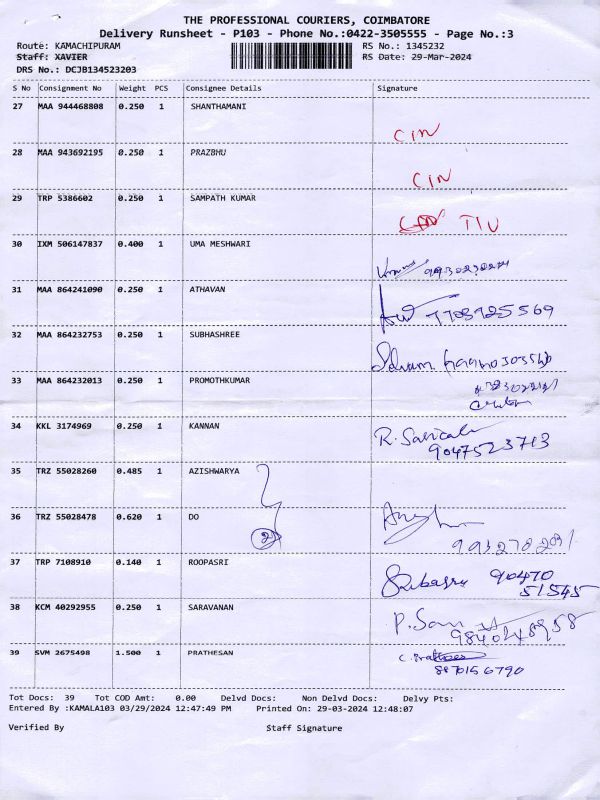 THE PROFESSIONAL COURIERS, COIMBATORE
Delivery Runsheet - P103 - Phone No.:0422-3505555 - Page No.:3
Route: KAMACHIPURAM RS No.: 1345232
Staff: XAVIER RS Date: 29-Mar-2024
DRS No.: DCJB134523203
S No Consignment No Weight PCS Consignee Details Signature
27 MAA 944468808 0.250 1 SHANTHAMANI
CIN
28 MAA 943692195 0.250 1 PRAZBHU
CIN
29 TRP 5386602 0.250 1 SAMPATH KUMAR
TIN
30 IXM 506147837 0.400 1 UMA MESHWARI
31 MAA 864241090 0.250 1 ATHAVAN
7708725569
32 MAA 864232753 0.250 1 SUBHASHREE
33 MAA 864232013 0.250 1 PROMOTHKUMAR
34 KKL 3174969 0.250 1 KANNAN
R.
9047523713
35 TRZ 55028260 0.485 1 AZISHWARYA
36 TRZ 55028478 0.620 1 DO
2
37 TRP 7108910 0.140 1 ROOPASRI
90470
51545
38 KCM 40292955 0.250 1 SARAVANAN
P.
9840248958
39 SVM 2675498 1.500 1 PRATHESAN
C.
8870156790
Tot Docs: 39 Tot COD Amt: 0.00 Delvd Docs: Non Delvd Docs: Delvy Pts:
Entered By :KAMALA103 03/29/2024 12:47:49 PM Printed On: 29-03-2024 12:48:07
Verified By Staff Signature